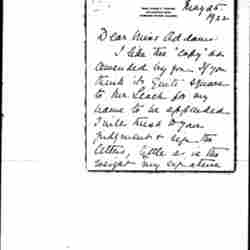 May 25
1922
Dear Miss Addams:
I like the "copy" as
amended by you. If you
think it quite square
to Mr. Leach for my
name to be appended
I will trust to your
judgment & sign the
letter, little as is the
weight my signature